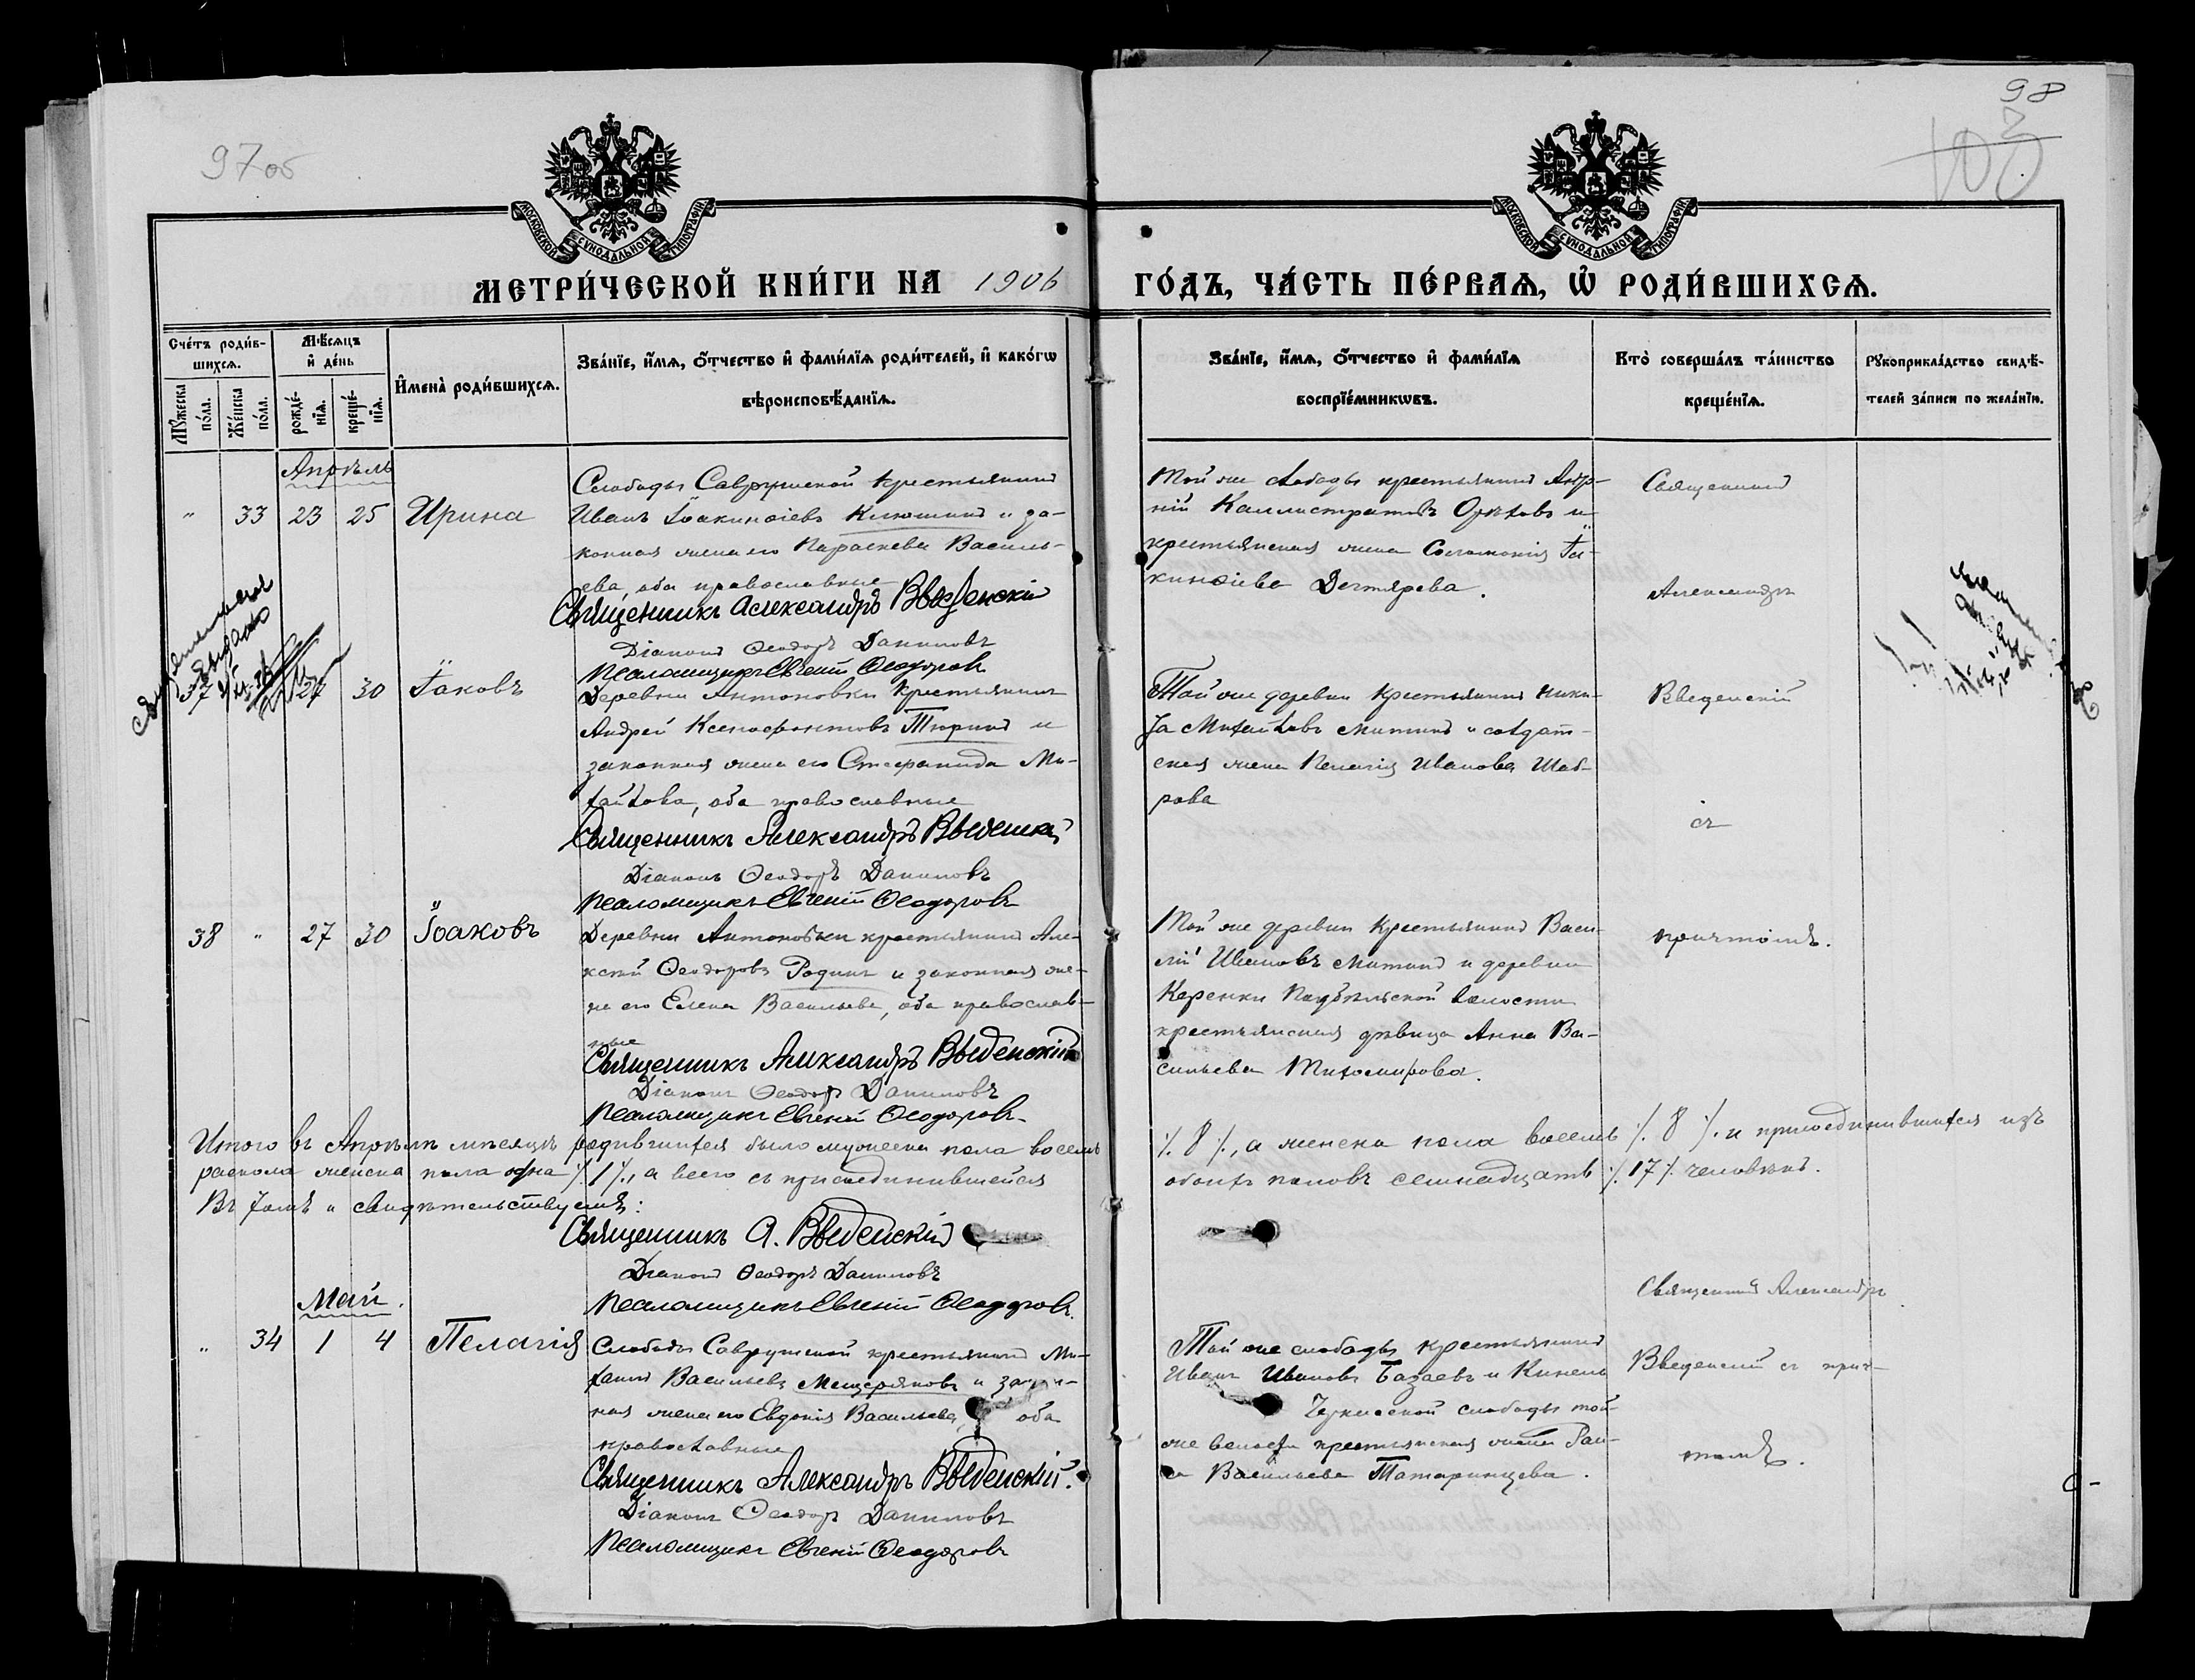 97об
98
МОСКОВСКОЙ СѴНОДАЛЬНОЙ ТИПОГРАФІИ
МОСКОВСКОЙ СѴНОДАЛЬНОЙ ТИПОГРАФІИ
МЕТРИ́ЧЕСКОЙ КНИ́ГИ НА 1906 ГО́ДЪ, ЧА́СТЬ ПЕ́РВАѦ, Ѡ҆ РОДИ́ВШИХСѦ.
Сче́тъ роди́в-
шихсѧ.
Мꙋ́жеска по́ла.
Же́нска по́ла.
Мѣ́сѧцъ
и҆ де́нь
рожде́-
нїѧ.
креще́-
нїѧ.
И҆мена̀ роди́вшихсѧ.
Зва́нїе, и҆́мѧ, о҆́тчество и҆ фами́лїѧ роди́телей, и҆ како́гѡ
вѣроисповѣ́данїѧ.
Зва́нїе, и҆́мѧ, о҆́тчество и҆ фами́лїѧ
воспрїе́мникѡвъ.
Кто̀ соверша́лъ та́инство
креще́нїѧ.
Рꙋкоприкла́дство свидѣ́-
телей за́писи по жела́нїю.
Апрѣль
" 33 23 25 Ирина
Слободы Саврушской крестьянинъ
Иванъ Іоакинѳіевъ Клюшинъ и за-
конная жена его Параскева Василь-
ева, оба православные
Священникъ Александръ Введенскій
Діаконъ Ѳеодоръ Даниловъ
Псаломщикъ Евгеній Ѳеодоровъ
Той же слободы крестьянинъ
ній Каллистратовъ Орѣховъ и
крестьянская жена Соломонія Іа-
кинѳіева Дегтярева.
Священникъ
Александръ
37 27 30 Іаковъ
Деревни Антоновки крестьянинъ
Андрей Ксенофонтовъ Тюринъ и
законная жена его Стефанида Ми-
хайлова, оба православные
Священникъ Александръ Введенскій
Діаконъ Ѳеодоръ Даниловъ
Псаломщикъ Евгеній Ѳеодоровъ
Той же деревни крестьянинъ Ники-
та Михайловъ Митинъ и солдат-
ская жена Пелагія Иванова Шаб-
рова
Введенскій
съ
38 " 27 30 Іаковъ
Деревни Антоновки крестьянинъ Але-
ксѣй Ѳеодоровъ Родинъ и законная же-
на его Елена Васильева, оба православ-
ные
Священникъ Александръ Введенскій
Діаконъ Ѳеодоръ Даниловъ
Псаломщикъ Евгеній Ѳеодоровъ
Той же деревни крестьянинъ Васи-
лій Ивановъ Митинъ и деревни
Каренки волости
крестьянская дѣвица Анна Ва-
сильева Тихомирова.
причтомъ.
Итого въ Апрѣлѣ мѣсяцѣ родившихся было мужеска пола восемь ./. 8 ./., а женска пола восемь ./. 8 ./. и присоединившихся изъ
раскола женска пола одна ./. 1 ./., а всего съ присоединившейся обоихъ половъ семнадцать ./. 17 ./. человѣкъ.
Въ томъ и свидѣтельствуемъ:
Священникъ А. Введенскій
Діаконъ Ѳеодоръ Даниловъ
Псаломщикъ Евгеній Ѳеодоровъ.
Май.
" 34 1 4 Пелагія
Слободы Саврушской крестьянинъ Ми-
хаилъ Васильевъ Мещеряковъ и закон-
ная жена его Евдокія Васильева, оба
православные
Священникъ Александръ Введенскій.
Діаконъ Ѳеодоръ Даниловъ
Псаломщикъ Евгеній Ѳеодоровъ
Той же слободы крестьянинъ
Иванъ Ивановъ Базаевъ и Кинель
Черкасской слободы той
же волости крестьянская жена Раи-
са Васильева Татаринцева.
Священникъ Александръ
Введенскій съ прич-
томъ.